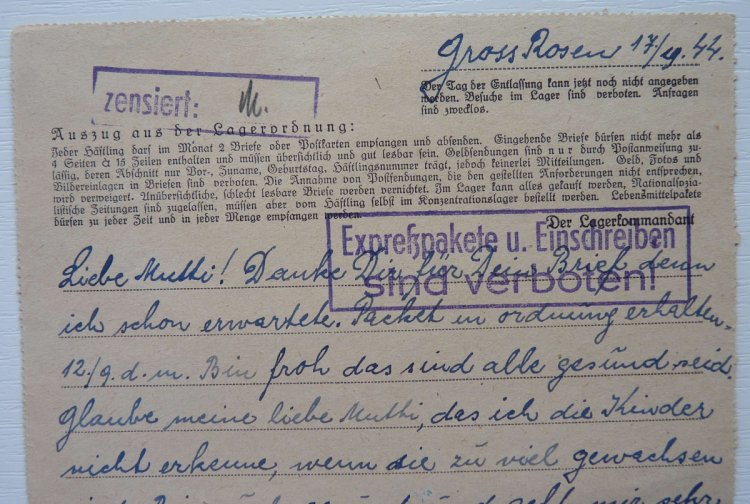 Gross Rosen 17/9. 44.
Der Tag der Entlassung kann jetzt noch nicht angegeben
werden. Besuche im Lager sind verboten. Anfragen
sind zwecklos.
zensiert:
Auszug aus der Lagerordnung:
Jeder Häftling darf im Monat 2 Briefe oder Postkarten empfangen und absenden. Eingehende Briefe dürfen nicht mehr als
4 Seiten à 15 Zeilen enthalten und müssen übersichtlich und gut lesbar sein. Geldsendungen sind nur durch Postanweisung zu-
lässig, deren Abschnitt nur Vor-, Zuname, Geburtstag, Häftlingsnummer trägt, jedoch keinerlei Mitteilungen. Geld, Fotos und
Bildereinlagen in Briefen sind verboten. Die Annahme von Postsendungen, die den gestellten Anforderungen nicht entsprechen,
wird verweigert. Unübersichtliche, schlecht lesbare Briefe werden vernichtet. Im Lager kann alles gekauft werden, Nationalsozia-
listische Zeitungen sind zugelassen, müssen aber vom Häftling selbst im Konzentrationslager bestellt werden. Lebensmittelpakete
dürfen zu jeder Zeit und in jeder Menge empfangen werden.
Der Lagerkommandant
Expreßpakete u. Einschreiben
sind verboten!
Liebe Mutti! Danke Dir für Dein Brief, denn
ich schon erwartete. Packet in ordnung erhalten
12./9. d. m. Bin froh das sind alle gesund seid.
Glaube meine liebe Mutti, das ich die Kinder
nicht erkenne, wenn die zu viel gewachsen